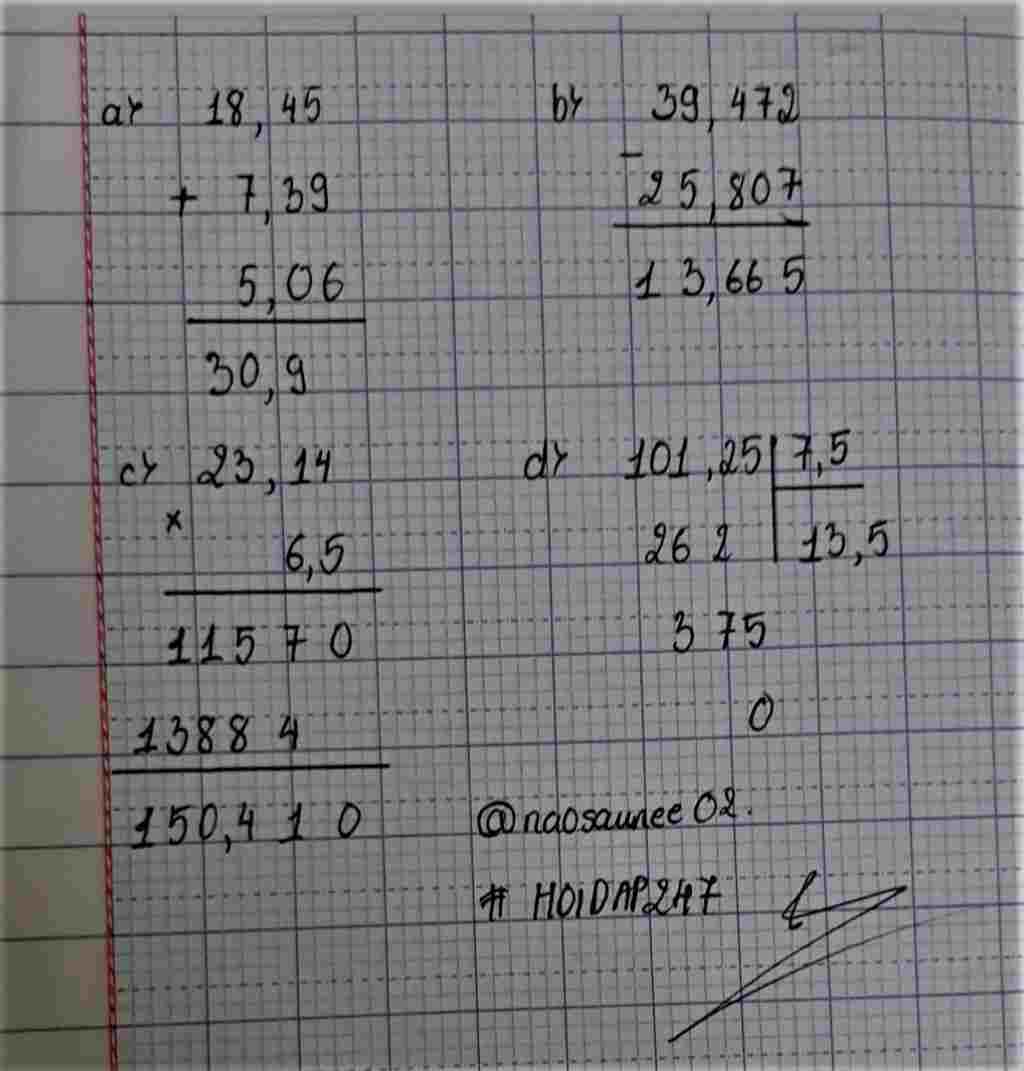 a) 18,45
+ 7,39
5,06
30,9
b) 39,472
-
25,807
13,665
c) 23,14
x
6,5
11570
13884
150,410
d) 101,25 7,5
262 13,5
375
0
@naosaunee02.
# HOIDAP247